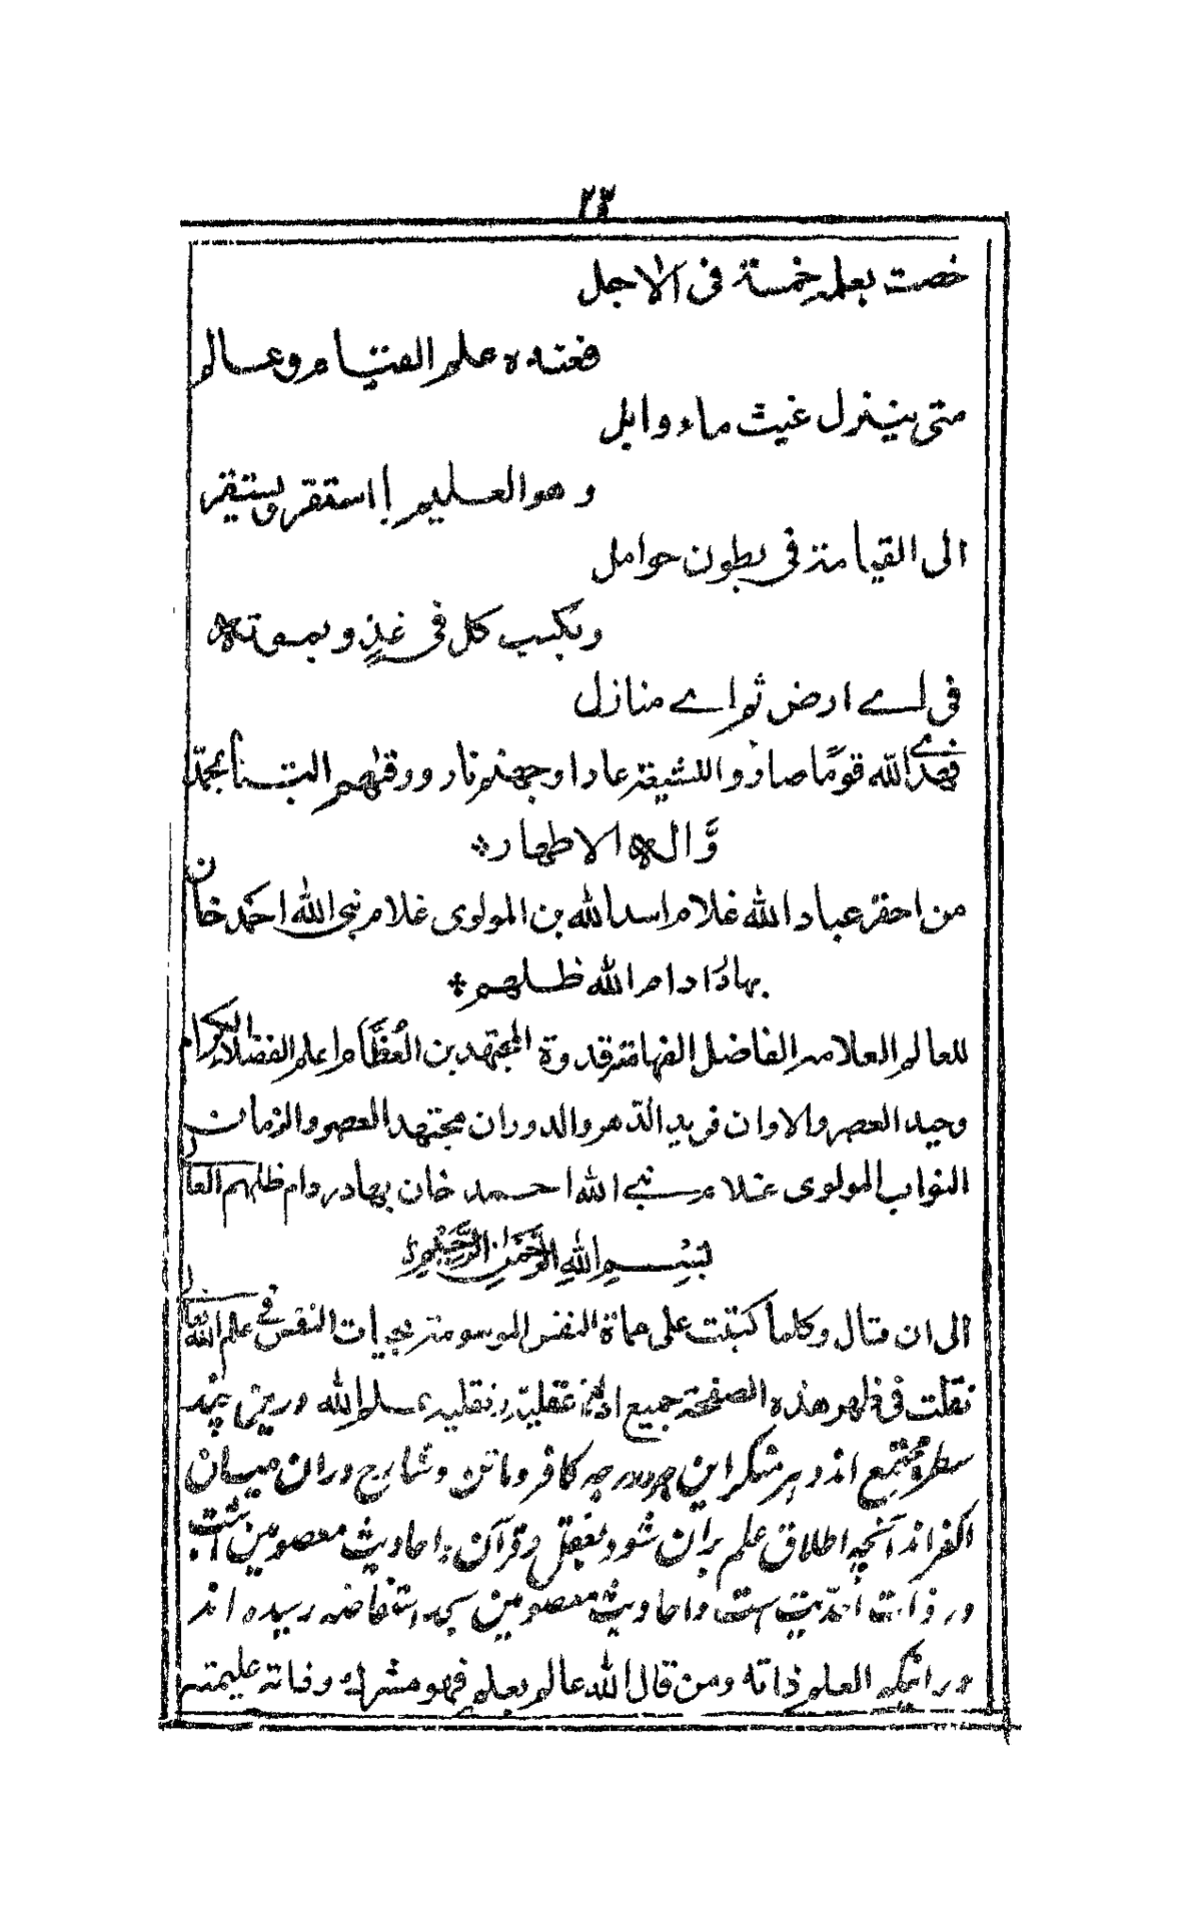 ٢٣
خصت بعلمه خمسة فى الاجل
فعنده علم القيام وعالم
متى ينزل غيث ماء وابل
وهو العليم استقر ويستقر
الى القيامة فى بطون حوامل
ويكسب كل فى غد وبموته
فى اے ارض ثم اے منازل
فهدى الله قوما صاروا للشيعة عارا وجهنم نار ووقٰهم النبى بمحمد
وَّاله الاطهار
من احقر عباد الله غلام اسد الله بن المولوى غلام نبى الله احمد خان
بهادر ادام الله ظلهم
للعالم العلامه الفاضل الفهامة قدوة المجتهدين العُظَّام اعلم الفضلاء الكرام
وحيد العصر والاوان فريد الدّهر والدوران مجتهد العصر والزمان
النواب المولوى غلام نبے الله احمد خان بهادر دام ظلهم العالى
بِسْمِ اللهِ الرَّحْمٰنِ الرَّحِيْمِ
الى ان قال وكلما كتبت على النفس الموسومة بحيات النفس فى علم الله تعالى
نقلت فى ظهر هذه الصفحة جميع عقلية ونقليه علم الله درين چند
سطر مجتمع اند و هر منكر اين چه كافر و ماتن و شارح دران ميان
اكفر اند آنچه اطلاق علم بران شود بعقل وقرآن و احاديث معصومين
در ذات احديت است و احاديث معصومين بحد استفاضه رسيده اند
در اينكه العلم ذاته ومن قال الله عالم بعلم فهو مشرك وفاته عليمته